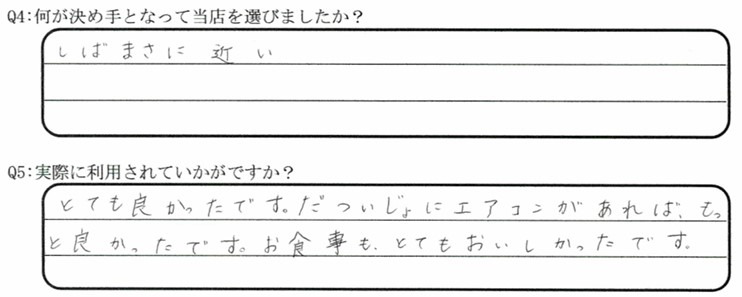 Q4:何が決め手となって当店を選びましたか？
しばまさに 近い
Q5:実際に利用されていかがですか？
とても良かったです。だついじょにエアコンがあれば、もっ
と良かったです。お食事も、とてもおいしかったです。